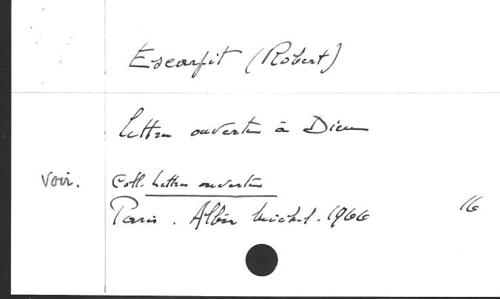 Escarpit (Robert)
Lettre ouverte à Dieu
Voir. Coll. Lettres ouvertes
Paris. Albin Michel. 1966 16